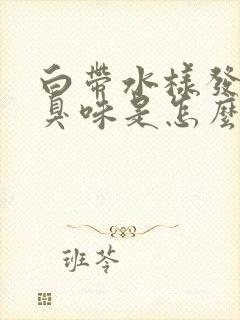 白帶水樣發
臭味是怎麼
班苓